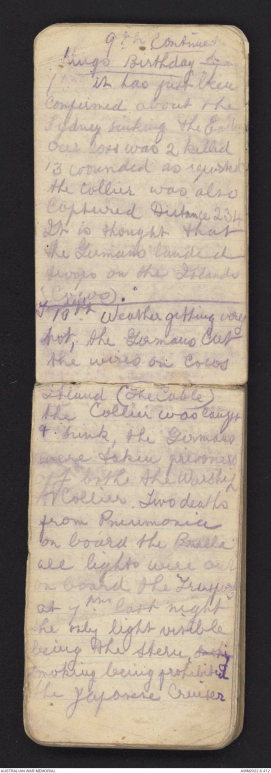 9th Continued
Kings Birthday
it has just been
confirmed about the
Sydney sinking the Emden
Our loss was 2 killed
13 wounded as reported
the collier was also
captured Distance 234
It is thought that
the Germans landed
troops on the Islands
(Cocos).
T 10th Weather getting very
hot, the Germans Cut
the wires on Cocos
Island (The Cable)
the Collier was caught
& sunk, the Germans
were taken prisoners
off both the Warship
& Collier. Two deaths
from Pneumonia
on board the
all lights were out
on board the
at 7 pm last night
the only light visible
being the stern
smoking being prohibited
the Japanese Cruiser
AUSTRALIAN WAR MEMORIAL